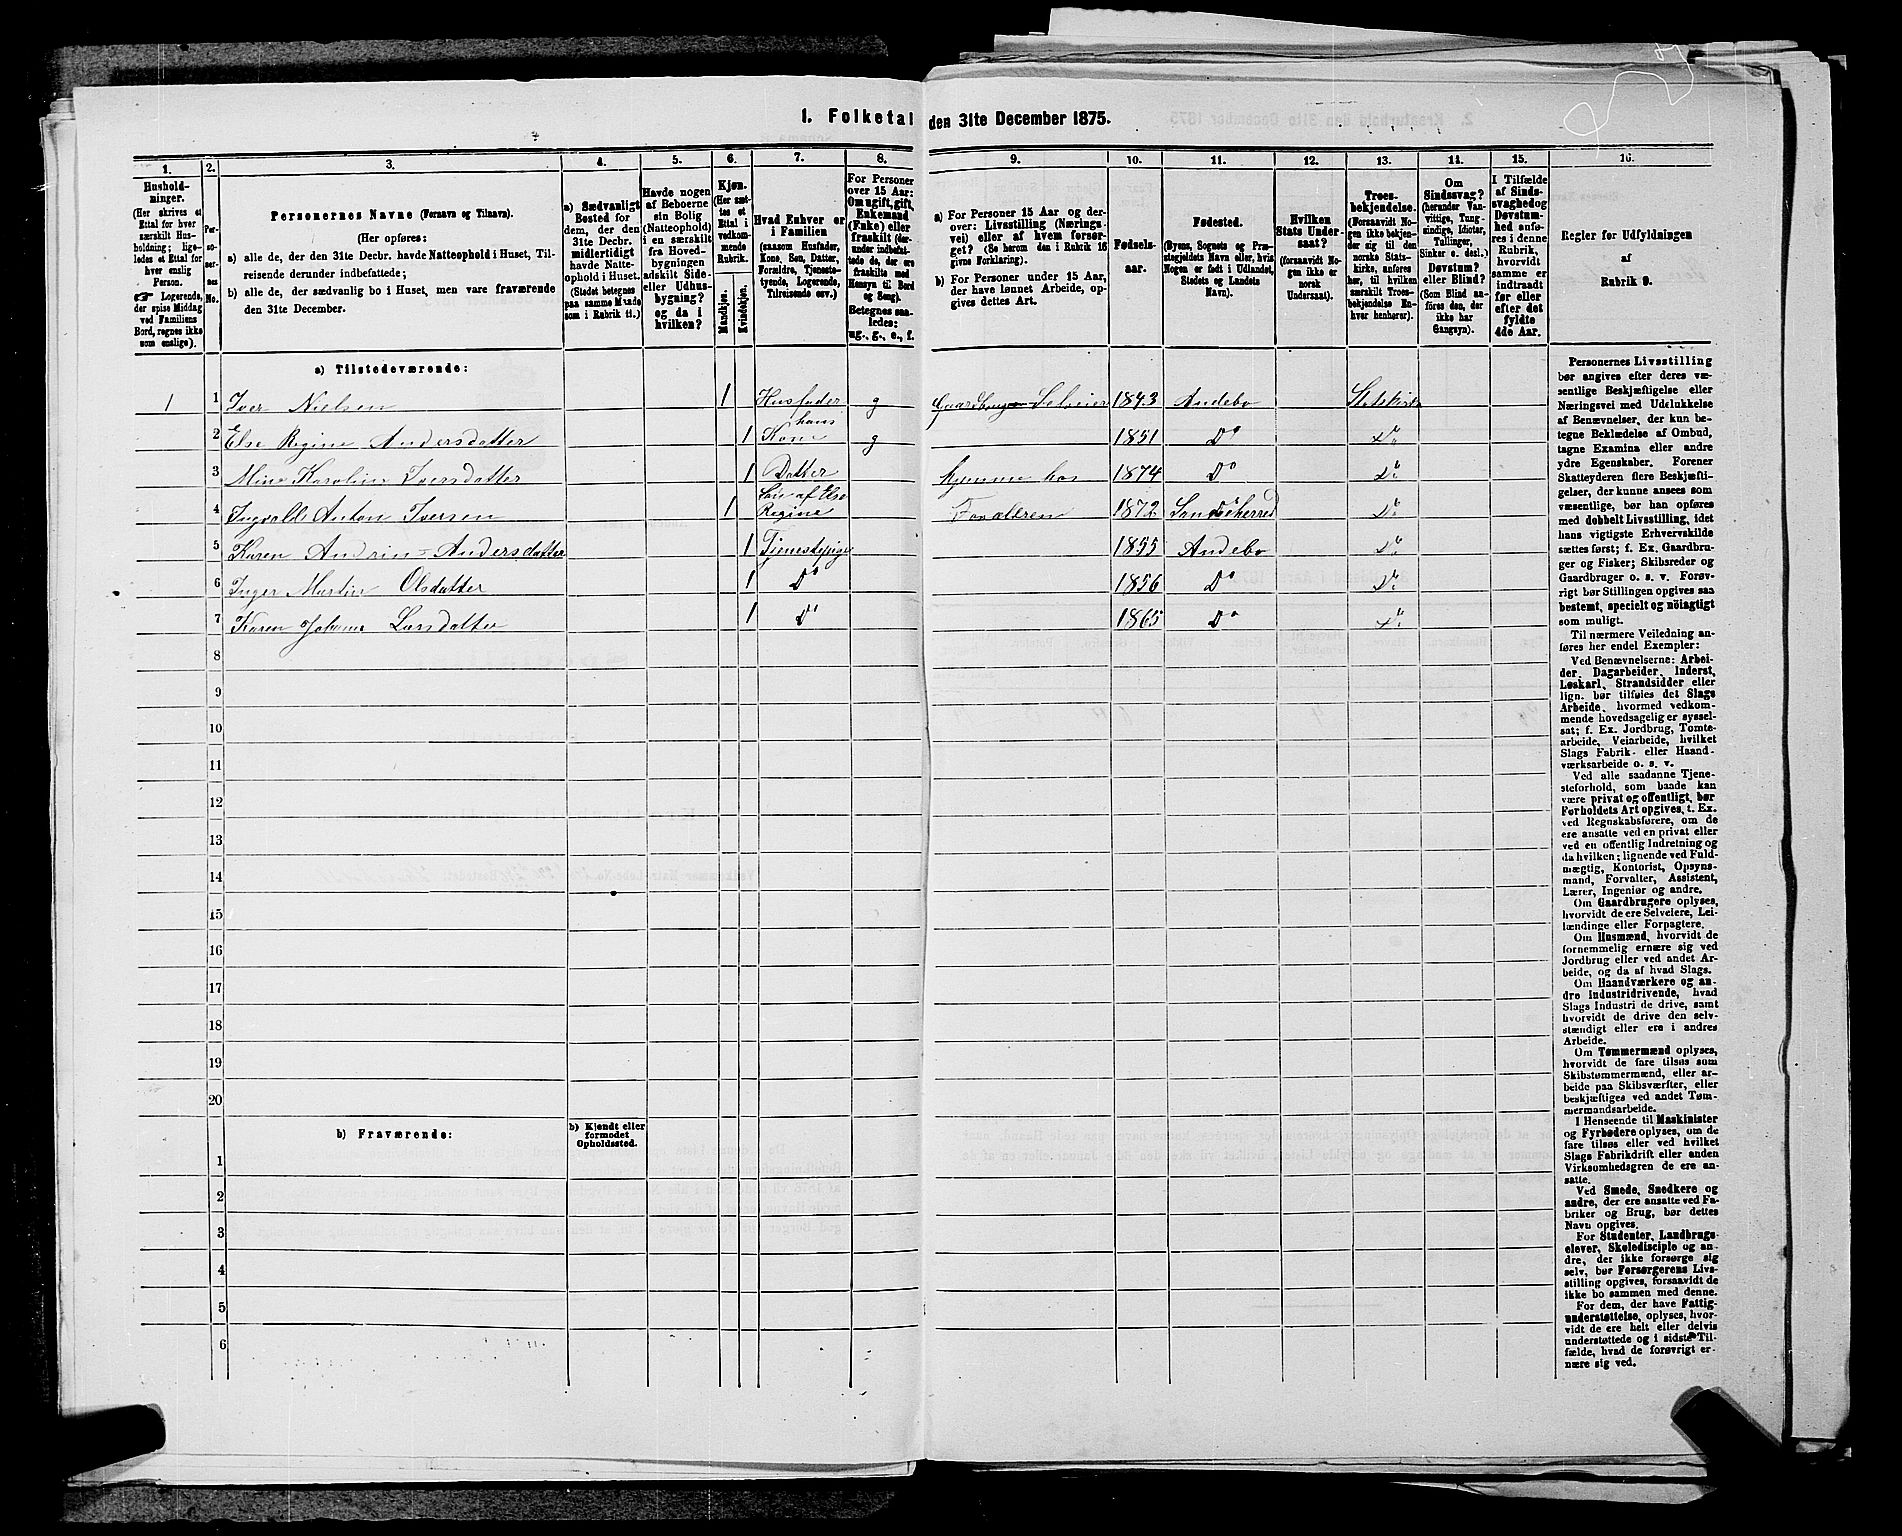 1. Folketal den 31te December 1875.
1. 2. 3. 4. 5. 6. 7. 8. 9. 10. 11. 12. 13. 14. 15. 16.
Husholdninger.
(Her skrives et
Ettal for hver
særskilt Husholdning;
ligeledes et Ettal for
hver enslig
Person.
☛ Logerende,
der spise Middag
ved Familiens
Bord, regnes ikke
som enslige).
Personernes No.
Personernes Navne (Fornavn og Tilnavn).
(Her opføres:
a) alle de, der den 31te Decbr. havde Natteophold i Huset, Tilreisende derunder indbefattede;
b) alle de, der sædvanlig bo i Huset, men vare fraværende
den 31te December.
a) Sædvanligt
Bosted for
dem, der den
31te Decbr.
midlertidigt
havde Natteophold i Huset.
(Stedet betegnes
paa samme Maade
som i Rubrik 11.)
Havde nogen
af Beboerne
sin Bolig
(Natteophold)
i en særskilt
fra Hovedbygningen
adskilt Side-
eller Udhusbygning?
og da i
hvilken?
Kjøn.
(Her sættes et
Ettal i
vedkommende
Rubrik.
Mandkjøn.
Kvindekjøn.
Hvad Enhver er
i Familien
(saasom Husfader,
Kone, Søn, Datter,
Forældre, Tjenestetyende, Logerende,
Tilreisende osv.)
For Personer
over 15 Aar:
Om ugift, gift,
Enkemand
(Enke) eller
fraskilt (derunder indbefattede de, der ere
fraskilte med
Hensyn til Bord
og Seng).
Betegnes saaledes:
ug., g., e., f.
a) For Personer 15 Aar og derover: Livsstilling (Næringsvei) eller af hvem forsørget? (Se herom den i Rubrik 16
givne Forklaring).
b) For Personer under 15 Aar,
der have lønnet Arbeide, opgives dettes Art.
Fødselsaar.
Fødested.
(Byens, Sognets og Præstegjeldets Navn eller, hvis
Nogen er født i Udlandet,
Stedets og Landets
Navn).
Hvilken
Stats Undersaat?
(forsaavidt Nogen ikke er
norsk
Undersaat).
Troesbekjendelse.
(Forsaavidt Nogen ikke bekjender sig til den
norske Statskirke, anføres
her, til hvilken
særskilt Troesbekjendelse Enhver henhører).
Om
Sindssvag?
(herunder Vanvittige, Tungsindige, Idioter,
Tullinger,
Sinker o. desl.)
Døvstum?
eller Blind?
(Som Blind anføres den, der
ikke har
Gangsyn).
I Tilfælde
af Sindssvaghed og
Døvstumhed anføres i denne
Rubrik,
hvorvidt
samme er
indtraadt
før eller
efter det
fyldte
4de Aar.
Regler for Udfyldningen
af
Rubrik 9.
a) Tilstedeværende:
1 1 Iver Nielsen 1 Husfader g Gaardbruger Selveier 1843 Andebo Statskirke
2 Else Regine Andersdatter 1 hans Kone g 1851 Do Do
3 Mine Karolin Iversdatter 1 Datter hjemme hos 1874 Do Do
4 Ingvald Anton Iversen 1 Søn af Else Regine Forældren 1872 Sandeherred Do
5 Karen Andrin Andersdatter 1 Tjenestepige 1855 Andebo Do
6 Inger Martin Olsdatter 1 Do 1856 Do Do
7 Karen Johane Larsdatter 1 Do 1865 Do Do
8
9
10
11
12
13
14
15
16
17
18
19
20
b) Fraværende:
b) Kjendt eller
formodet
Opholdssted.
1
2
3
4
5
6
Personernes Livsstilling
bør angives efter deres væsentlige Beskjæftigelse eller
Næringsvei med Udelukkelse
af Benævnelser, der kun betegne Beklædelse af Ombud,
tagne Examina eller andre
ydre Egenskaber. Forener
Skatteyderen flere Beskjæftigelser, der kunne ansees som
væsentlige, bør han opføres
med dobbelt Livsstilling, idet
hans vigtigste Erhvervskilde
sættes først; f. Ex. Gaardbruger og Fisker; Skibsreder og
Gaardbruger o. s. v. Forøvrigt bør Stillingen opgives saa
bestemt, specielt og nöiagtigt
som muligt.
Til nærmere Veiledning anføres her endel Exempler:
Ved Benævnelserne: Arbeider, Dagarbeider, Inderst,
Løskarl, Strandsidder eller
lign. bør tilføies det Slags
Arbeide, hvormed vedkommende hovedsagelig er sysselsat; f. Ex. Jordbrug, Tomtearbeide, Veiarbeide, hvilket
Slags Fabrik- eller Haandværksarbeide o. s. v.
Ved alle saadanne Tjenesteforhold, som baade kan
være privat og offentligt, bør
Forholdets Art opgives, t. Ex.
ved Regnskabsførere, om de
ere ansatte ved en privat eller
ved en offentlig Indretning og
da hvilken; lignende ved Fuldmægtig, Kontorist, Opsynsmand, Forvalter, Assistent,
Lærer, Ingeniør og andre.
Om Gaardbrugere oplyses,
hvorvidt de ere Selveiere, Leilændinge eller Forpagtere.
Om Husmænd, hvorvidt de
fornemmelig ernære sig ved
Jordbrug eller ved andet Arbeide, og da af hvad Slags.
Om Haandværkere og andre Industridrivende, hvad
Slags Industri de drive, samt
hvorvidt de drive den selvstændigt eller ere i andres
Arbeide.
Om Tømmermænd oplyses,
hvorvidt de fare tilsøs som
Skibstømmermænd, eller arbeide paa Skibsværfter, eller
beskjæftiges ved andet Tømmermandsarbeide.
I Henseende til Maskinister
og Fyrbødere oplyses, om de
fare tilsøs eller ved hvilket
Slags Fabrikdrift eller anden
Virksomhedsgren de ere ansatte.
Ved Smede, Snedkere og
andre, der ere ansatte ved Fabriker og Brug, bør dettes
Navn opgives.
For Studenter, Landbrugselever, Skoledisciple og andre, der ikke forsørge sig
selv, bør Forsørgerens Livsstilling opgives, forsaavidt de
ikke bo sammen med denne.
For dem, der have Fattigunderstøttelse, oplyses, hvorvidt de ere helt eller delvis
understøttede og i sidste Tilfælde, hvad de forøvrigt ernære sig ved.